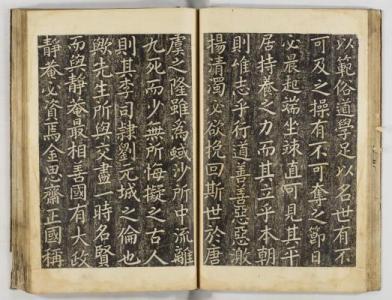 以範俗道學足以名世有不
可及之操有不可奪之節日
必晨起端坐竦直可見其平
居持養之力而其立乎本朝
則唯志乎行道善善惡惡激
揚清濁必欲挽回斯世於唐
虞之隆雖為蜮沙所中流離
九死而少無所悔擬之古人
則其李司隷劉元城之倫也
歟先生所與交盡一時名賢
而與靜菴最相善國有大政
靜菴必資焉金思齋正國稱